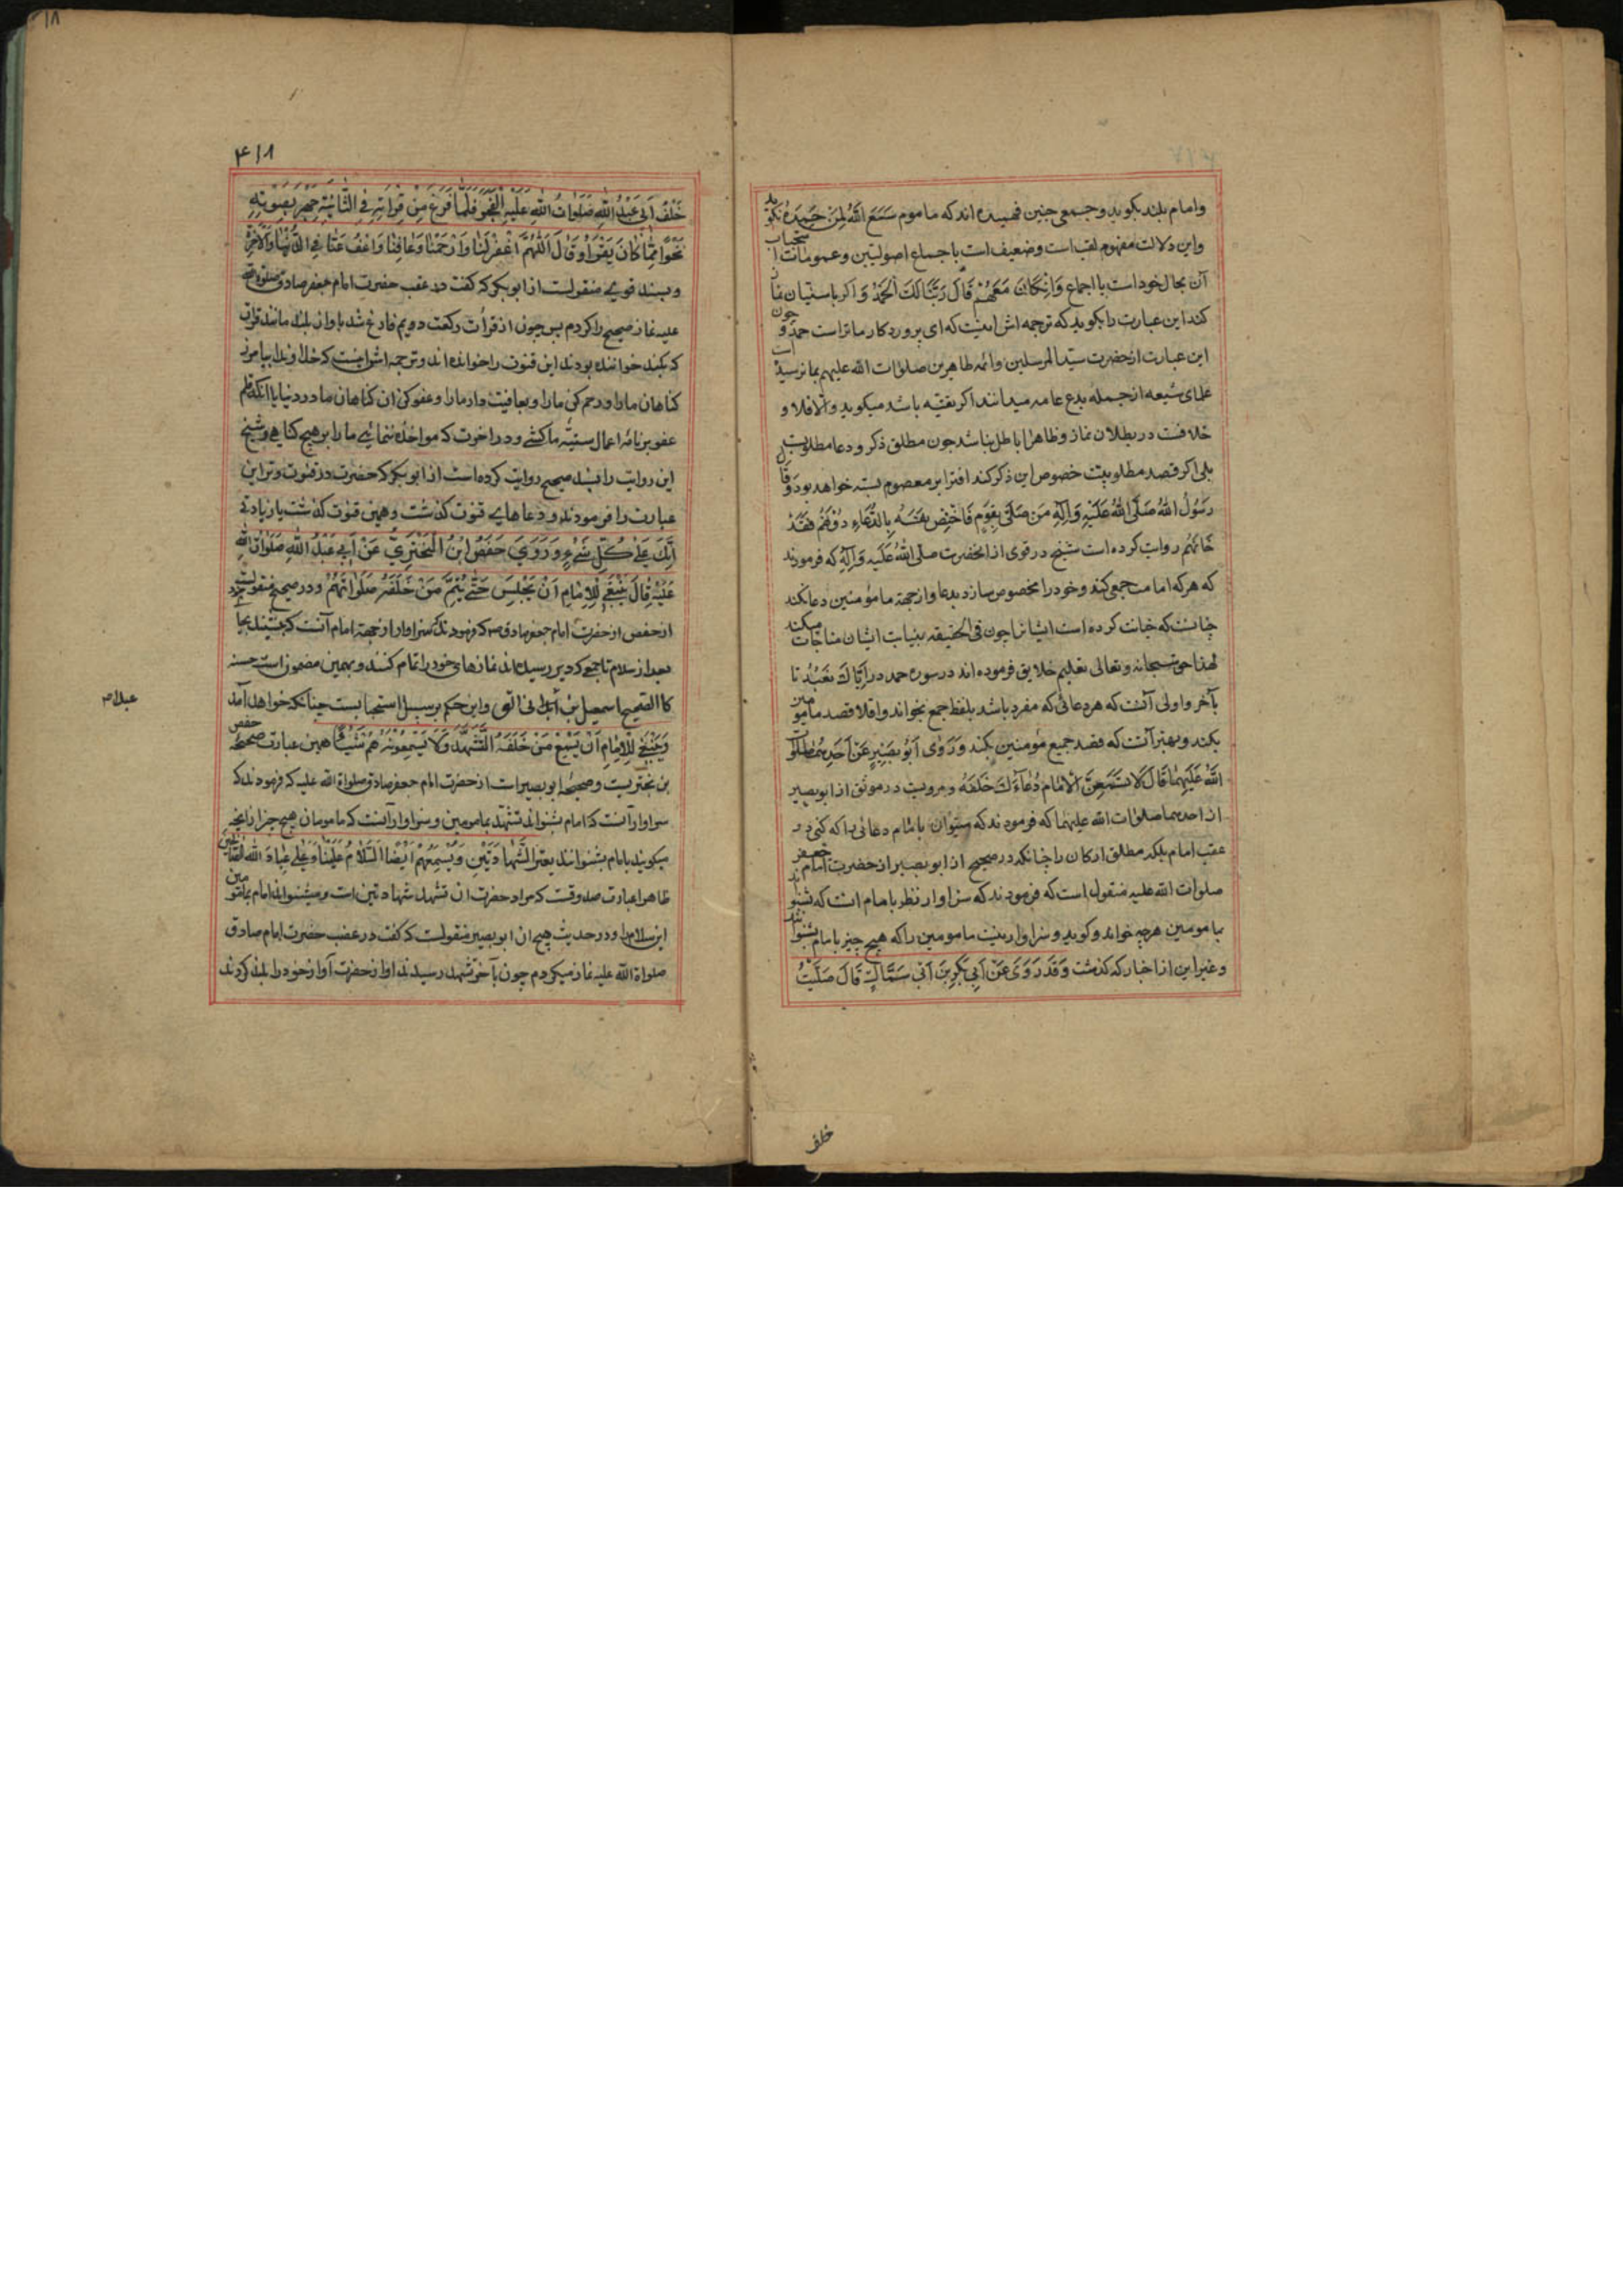 وامام بلند بکوید وجمعی چنین فهمیده اند که ماموم سَمِعَ اللهُ لِمَنْ حَمِدَهُ نکوید
واین دلالت مفهوم لقب است وضعیف است باجماع اصولیین وعمومات استحباب
آن بحال خود است با اجماع وَاِنْ كَانَ مَعَهُمْ قَالَ رَبَّنَا لَكَ الْحَمْدُ وَاکر باسنیان نماز
کند این عبارت را بکوید که ترجمه اش اینست که ای پروردکار ما تراست حمد و چون
این عبارت از حضرت سید المرسلین وائمه طاهرین صلوات الله علیهم بما نرسیده است
علمای شیعه از جمله بدع عامه میدانند اکر تقیه باشد میکوید والا فلا و
خلافست در بطلان نماز وظاهرا باطل نباشد چون مطلق ذکر ودعا مطلوبست
بلی اکر قصد مطلوبیت خصوص این ذکر کند افترا بر معصوم بسته خواهد بود وَقَالَ
رَسُولُ اللهُ صَلَّی اللهُ عَلَیْهِ وَآلِهِ مَنْ صَلَّی بِقَوْمٍ فَاخْتَصَّ نَفْسَهُ بِالدُّعَاءِ دُونَهُمْ فَقَدْ
خَانَهُمْ روایت کرده است شیخ در قوی از آنحضرت صلی اللهُ عَلَیهِ وَآلِهِ که فرمودند
که هرکه امامت جمعی کند وخود را مخصوص سازد بدعا واز جهة مامؤمنین دعا نکند
خیانت کرده است ایشانرا چون فی الحقیقه بنیابت ایشان مناجات میکند
لهذا حق سبحانه وتعالی تعلیم خلایق فرموده اند در سوره حمد در اِیَّاكَ نَعْبُدُ تا
بآخر واولی آنست که هر دعائی که مفرد باشد بلفظ جمع بخواند واقلا قصد مامومین
بکند وبهتر آنست که قصد جمیع مؤمنین بکند وَرَوَی اَبُو بَصِیرٍ عَنْ اَحَدِهِمَا صَلَوَاتُ
اللهُ عَلَیْهِمَا قَالَ لَا تُسْمِعَنَّ الْاِمَامَ دُعَاءَكَ خَلْفَهُ ومرویست در موثق از ابو بصیر
از احدهما صلوات الله علیهما که فرمودند که مشنوان بامام دعائی را که کنی در
عقب امام بلکه مطلق ارکان را چنانکه در صحیح از ابو بصیر از حضرت امام جعفر
صلوات الله علیه منقول است که فرمودند که سزاوار نظر بامام انست که بشنواند
بمامومین هرچه خواند وکوید وسزاوار نیست مامومین را که هیچ چیز بامام بشنوانند
وغیر این از اخبار که گذشت وَقَدْ رَوَی عَنْ اَبِي بَكْرِبْنِ اَبِي سَمَّالٍ قَالَ صَلَّیْتُ
خلف
۴۱۸
خَلْفَ اَبِي عَبْدِ اللهِ صَلَوَاتُ اللهِ عَلَیْهِ الْفَجْرَ فَلَمَّا فَرَغَ مِنْ قِرَائَتِهِ فِي الثَّانِیَةِ جَهَرَ بِصَوْتِهِ
نَحْوًا مِمَّا كَانَ یَقْرَأُ وَقَالَ اَللّهُمَّ اغْفِرْ لَنَا وَارْحَمْنَا وَعَافِنَا وَاعْفُ عَنَّا فِي الدُّنْیَا وَالْآخِرَةِ
وبسند قوی منقولست از ابو بکر که کفت در عقب حضرت امام جعفر صادق صلوات الله
علیه نماز صبح را کردم پس چون از قرأت رکعت دویم فارغ شد باواز بلند مانند قرأت
که بلند خوانده بودند این قنوت را خوانده اند وترجمه اش اینست که خداوندا بیامرز
کناهان مارا ورحم کن مارا وبعافیت دار مارا وعفو کن از کناهان ما در دنیا باانکه قلم
عفو بر نامه اعمال سیئه ما کشی ودر اخرت که مواخذه ننمائی مارا بر هیچ کناهی وشیخ
این روایت را بسند صحیح روایت کرده است از ابو بکر که حضرت در قنوت وتر این
عبارت را فرمودند ودعاهای قنوت کذشت وهمین قنوت کذشت با زیادتی
اِنَّكَ عَلَی كُلِّ شَيْءٍ وَرَوَی حَفْصُ ابْنُ الْبَخْتَرِيِّ عَنْ اَبِي عَبْدِ اللهِ صَلَوَاتُ اللهِ
عَلَیْهِ قَالَ یَنْبَغِي لِلْاِمَامِ اَنْ یَجْلِسَ حَتَّی یُتِمَّ مَنْ خَلْفَهُ صَلَوَاتَهُمْ ودر صحیح منقولست
از حفص از حضرت امام جعفر صادق ص که فرمودند که سزاوار از جهة امام آنست که بنشیند بجا
بعد از سلام تا جمعی که دیر رسیده اند نمازهای خود را تمام کنند وبهمین مضمون است حسنه
کالصحیح اسمعیل بن و این حکم بر سبیل استحبابست چنانکه خواهد آمد
عبدالص
وَیَنْبَغِي لِلْاِمَامِ اَنْ یُسْمِعَ مَنْ خَلْفَهُ التَّشَهُّدَ وَلَا یُسْمِعُونَهُ هُمْ شَیْئًا همین عبارت صحیحه حفص
بن بختریست وصحیحه ابو بصیر است از حضرت امام جعفر صادق صلواة الله علیه که فرمودند که
سزاوار آنست که امام بشنواند تشهد بمامومین وسزاوار آنست که مامومان هیچ چیز از آنچه
میکویند بامام نشنوانند یَعْنِي الشَّهَادَتَیْنِ وَیُسْمِعُهُمْ اَیْضًا اَلسَّلَامُ عَلَیْنَا وَعَلَی عِبَادِ اللهِ الصَّالِحِینَ
ظاهرا عبارت صدوقست که مراد حضرت از تشهد شهادتین است ومیشنواند امام بمامومین
این سلام را ودر حدیث صحیح از ابو بصیر منقولست که کفت در عقب حضرت امام صادق
صلواة الله علیه نماز میکردم چون بآخر تشهد رسیدند اواز حضرت آواز خود را بلند کردند